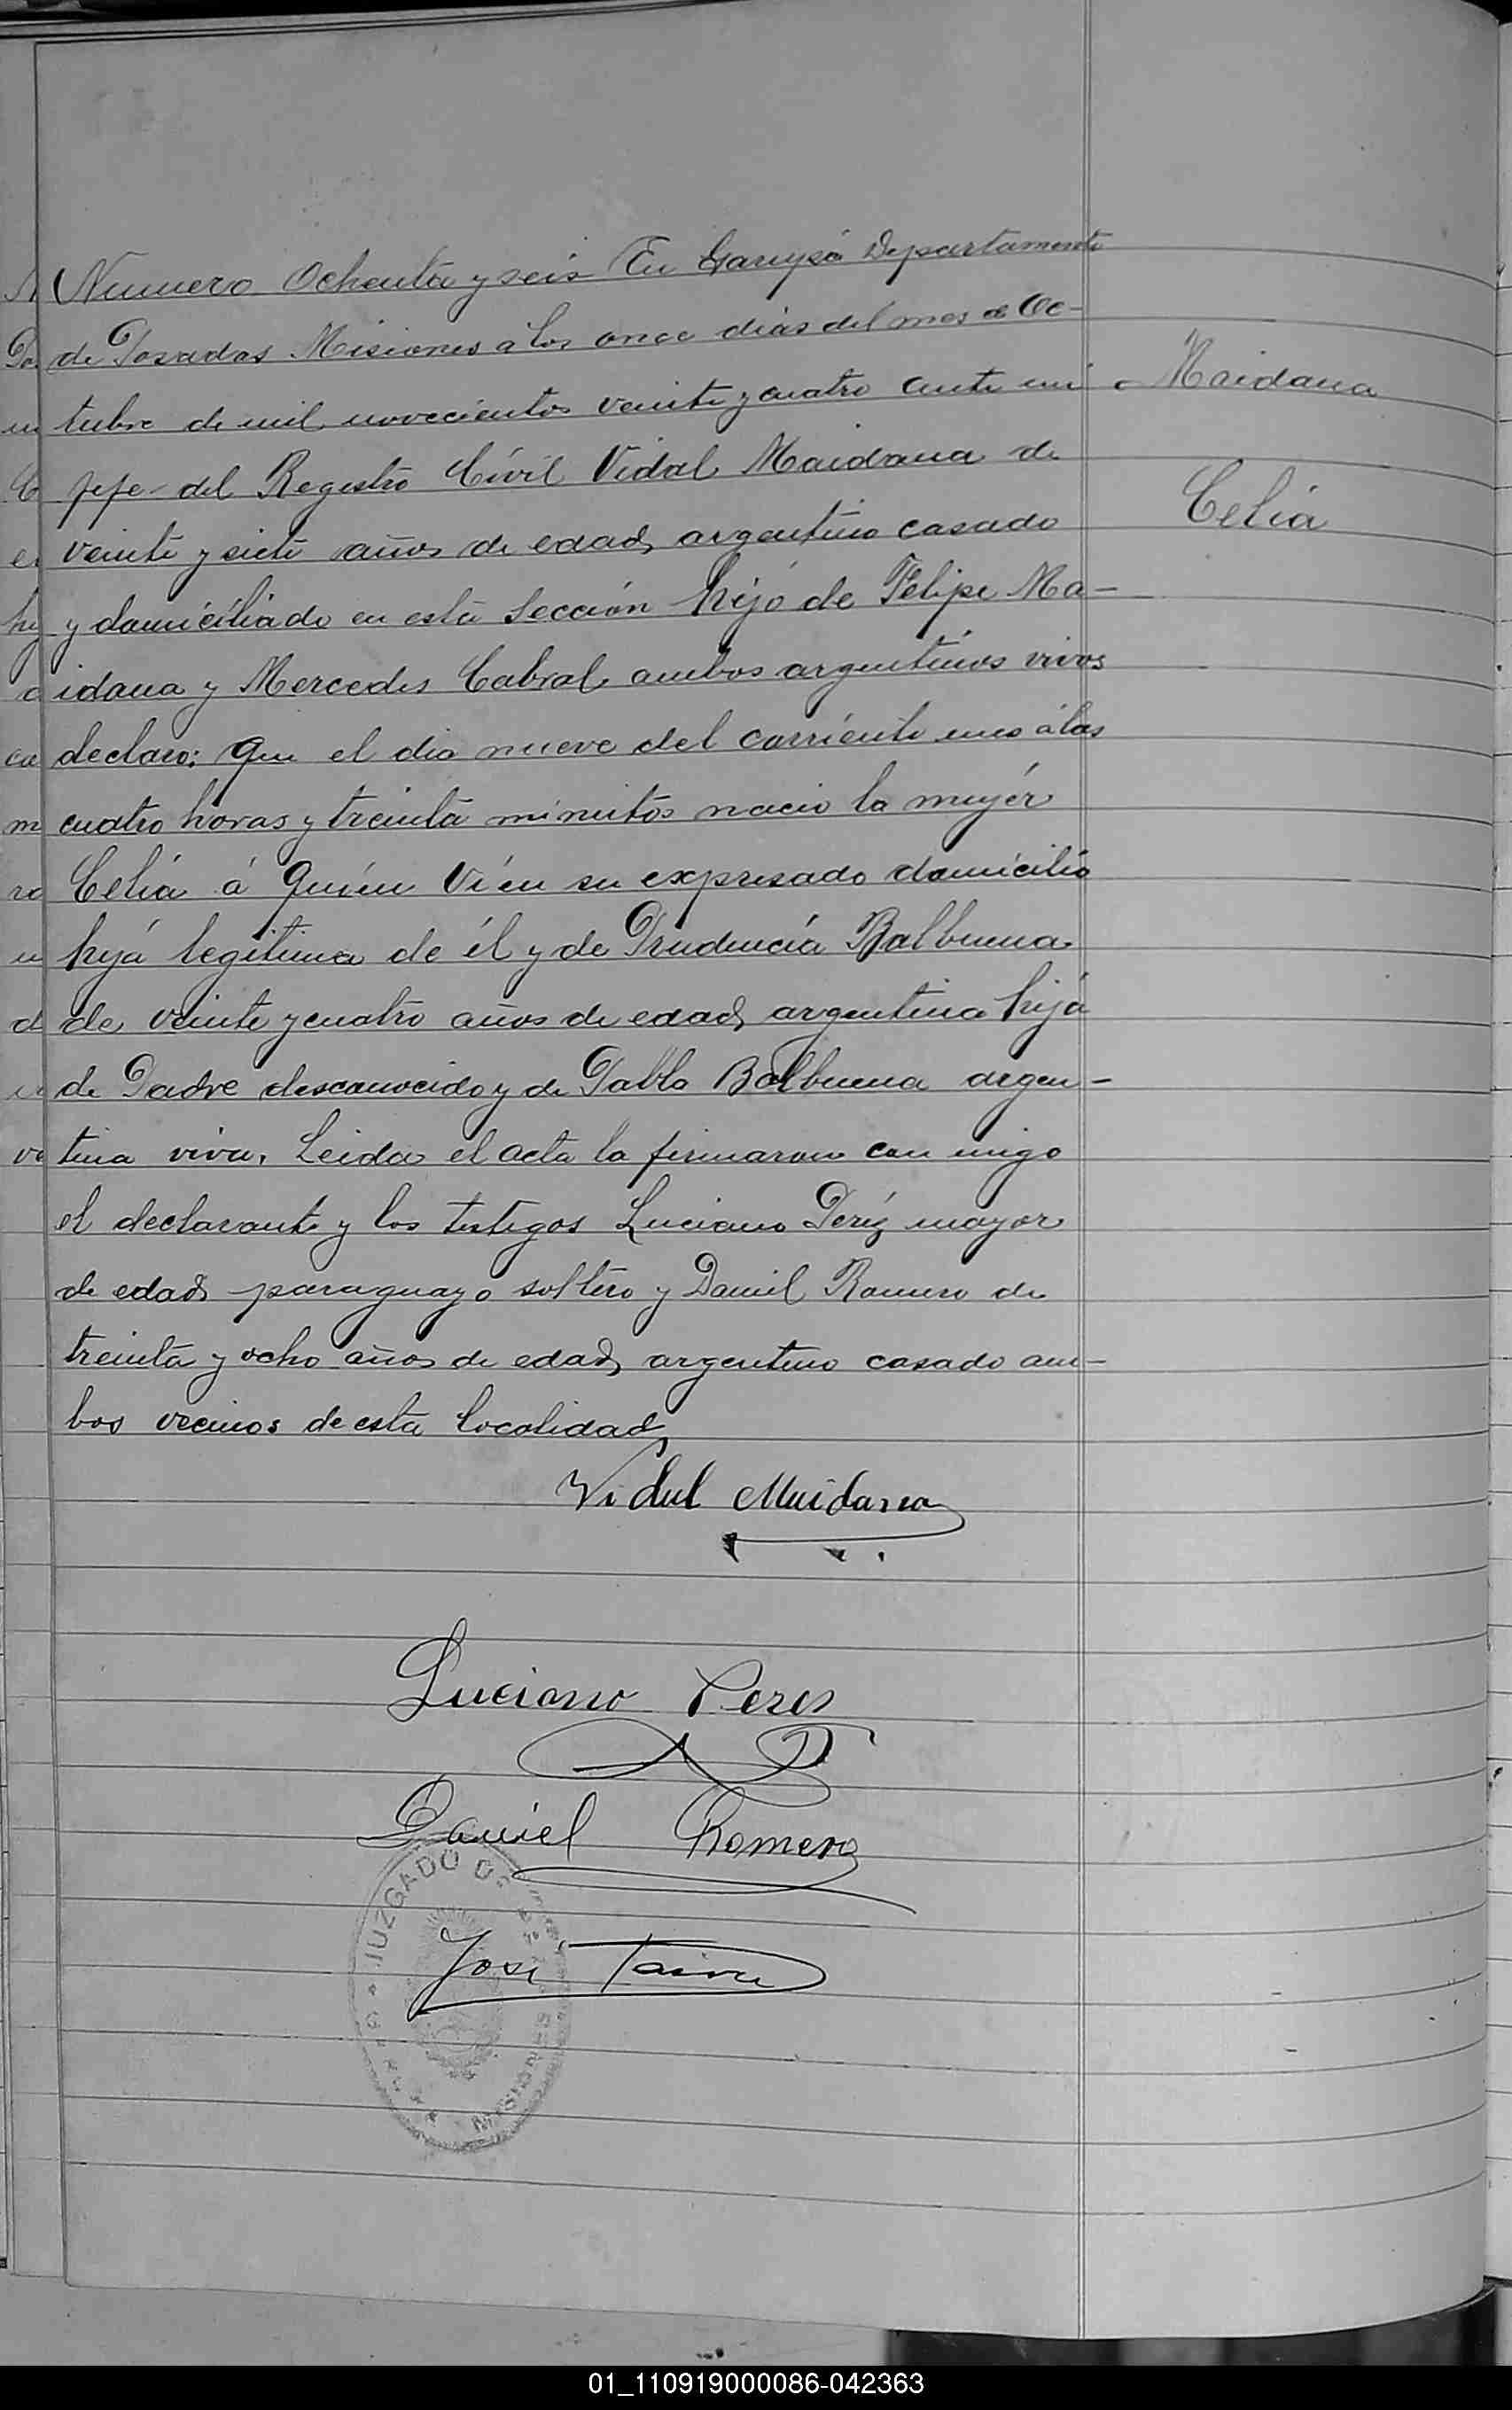 Numero Ochenta y seis En Garupá Departamento
de Posadas Misiones a los once dias del mes de Oc-
tubre de mil novecientos veinte y cuatro ante mi
Maidana
jefe del Registro Civil Vidal Maidana de
Celia
veinte y siete años de edad, argentino casado
y domiciliado en esta Sección hijo de Felipe Ma-
idana y Mercedes Cabral ambos argentinos vivos
declaro: que el dia nueve del corriente mes á las
cuatro horas y treinta minutos nacio la mujér
Celia á quien ví en su expresado domicilio
hija legitima de él y de Prudencia Balbuena
de veinte y cuatro años de edad, argentina hija
de Padre desconocido y de Pabla Balbuena argen-
tina viva. Leida el acta la firmaron con migo
el declarante y los testigos Luciano Periz mayor
de edad paraguayo soltero y Daniel Romero de
treinta y ocho años de edad, argentino casado am-
bos vecinos de esta localidad,
Vidal Maidana
Luciano Peres
Daniel Romero
JUZGADO DE
José
MISIONES
01_110919000086-042363